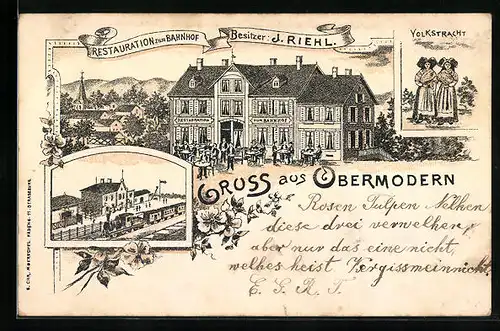 RESTAURATION ZUM BAHNHOF
Besitzer: J. RIEHL.
VOLKSTRACHT
RESTAURATION ZUM BAHNHOF
GRUSS aus OBERMODERN
Rosen Tulpen Nelken
diese drei verwelken,
aber nur das eine nicht,
welches heist Vergissmeinnicht
E. G. R. T.